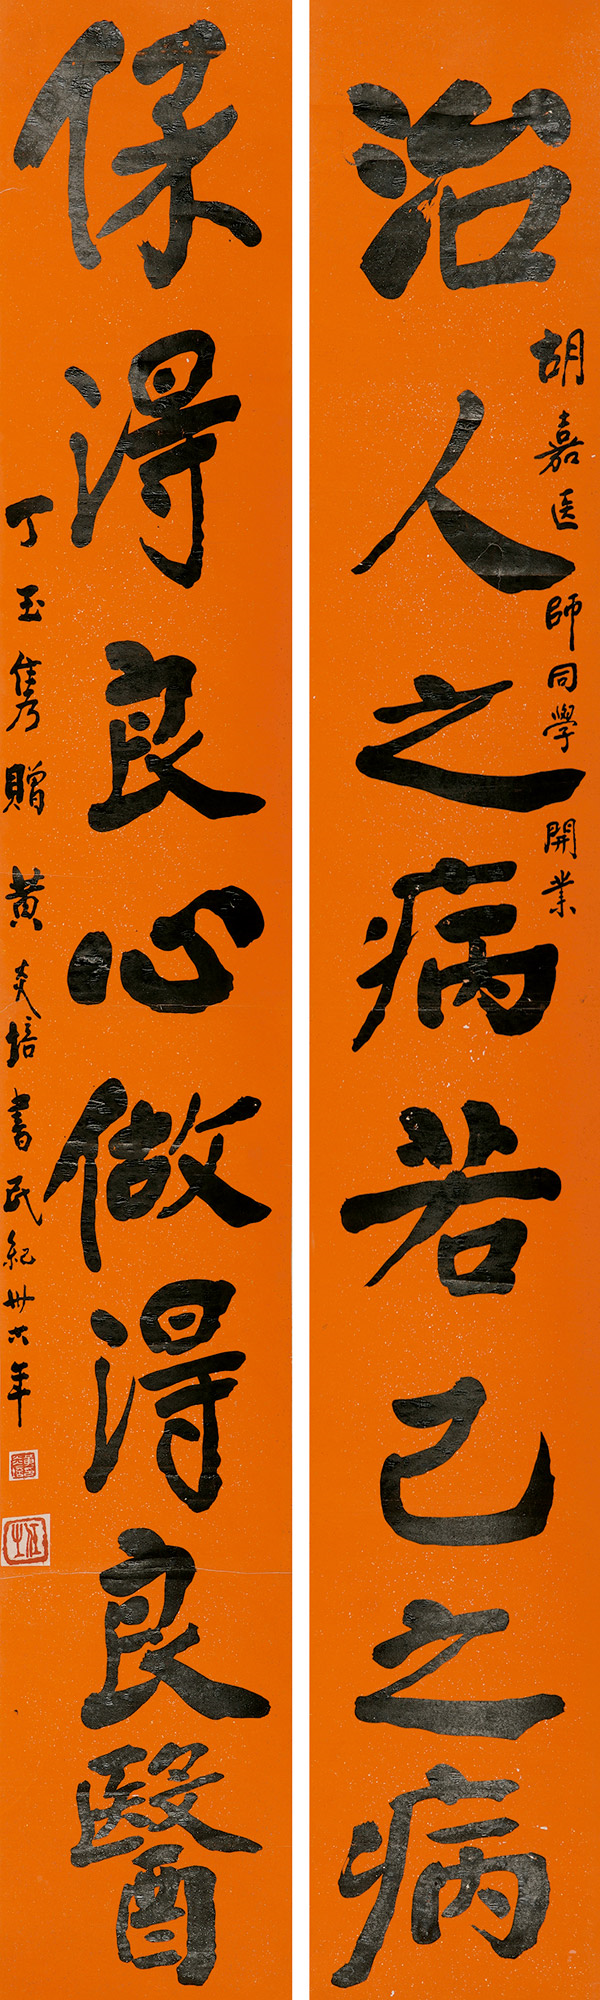 治人之病若己之病
胡嘉医師同學開業
保得良心做得良醫
丁玉隽贈黃炎培書民紀卅六年
任之